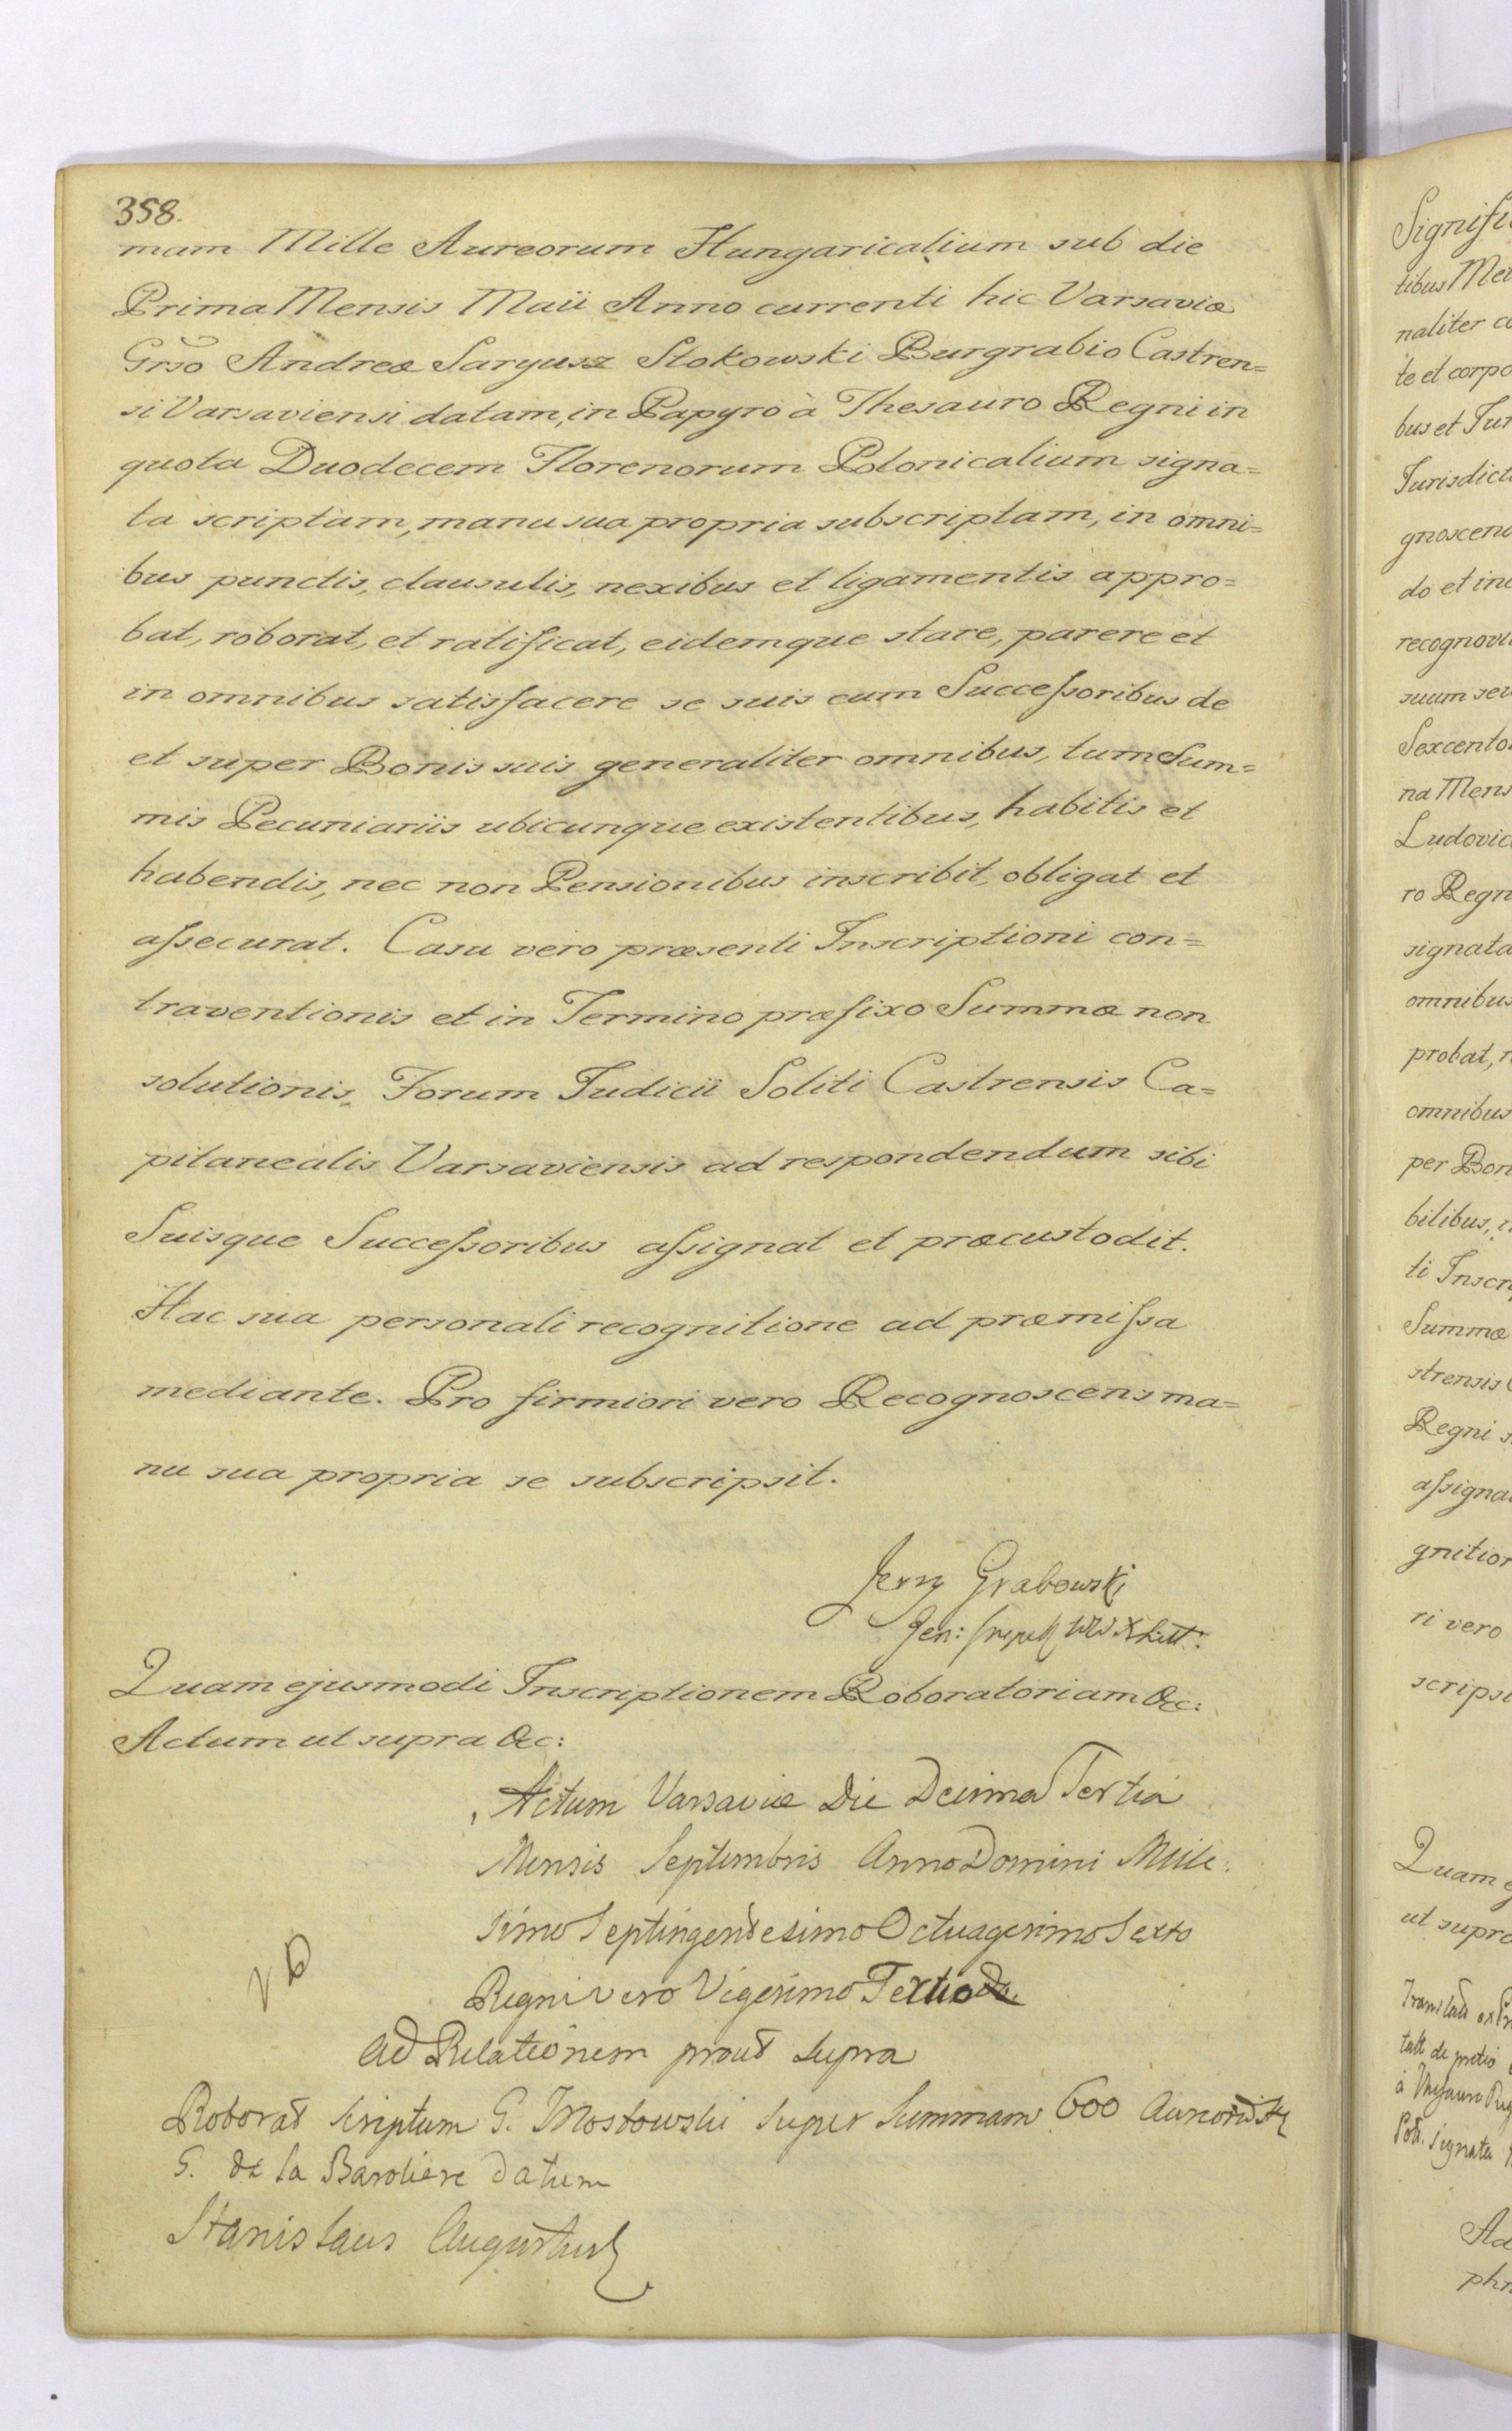 358.
mam Mille Aureorum Hungaricalium sub die
Prima Mensis Maii Anno currenti hic Varsaviæ
Grso Andreæ Saryusz Stokowski Burgrabio Castren=
si Varsaviensi datam, in Papyro à Thesauro Regni in
quota Duodecem Florenorum Polonicalium signa=
ta scriptam, manu sua propria subscriptam, in omni=
bus punctis, clausulis, nexibus et ligamentis appro=
bat, roborat, et ratificat, eidemque stare, parere et
in omnibus satisfacere se suis cum Succeſsoribus de
et super Bonis suis generaliter omnibus, tum Sum=
mis Pecuniariis ubicunque existentibus, habitis et
habendis, nec non Pensionibus inscribit, obligat et
aſsecurat. Casu vero præsenti Inscriptioni con=
traventionis et in Termino præfixo Summæ non
solutionis, Forum Judicii Soliti Castrensis Ca=
pitanealis Varsaviensis ad respondendum sibi
Suisque Succeſsoribus aſsignat et præcustodit.
Hac sua personali recognitione ad præmiſsa
mediante. Pro firmiori vero Recognoscens ma=
nu sua propria se subscripsit.
Jerzy Grabowski
Gen:
Quam ejusmodi Inscriptionem Roboratoriam &c:
Actum ut supra &c:
Actum Varsaviæ Die Decima Tertia
Mensis Septembris Anno Domini Mille:
simo Septingentesimo Octuagesimo Sexto
Regni vero Vigesimo Tertio
Ad Relationem prout supra
Roborat scriptum G. Mostowski super Summam 600
G. de la Baroliere datum
Stanislaus Augustus
Signifi
tibus
naliter
te et corpo
bus et Jur
Jurisdict
gnoscend
do et inc
recognovi
suum
Sexcento
na Mens
Ludovic
ro Regn
signata
omnibus
probat,
omnibus
per Bon
bilibus,
ti Inscr
Summæ
strensis
Regni
aſsigna
gnition
ri vero
scripsi
Quam e
ut supra
signata